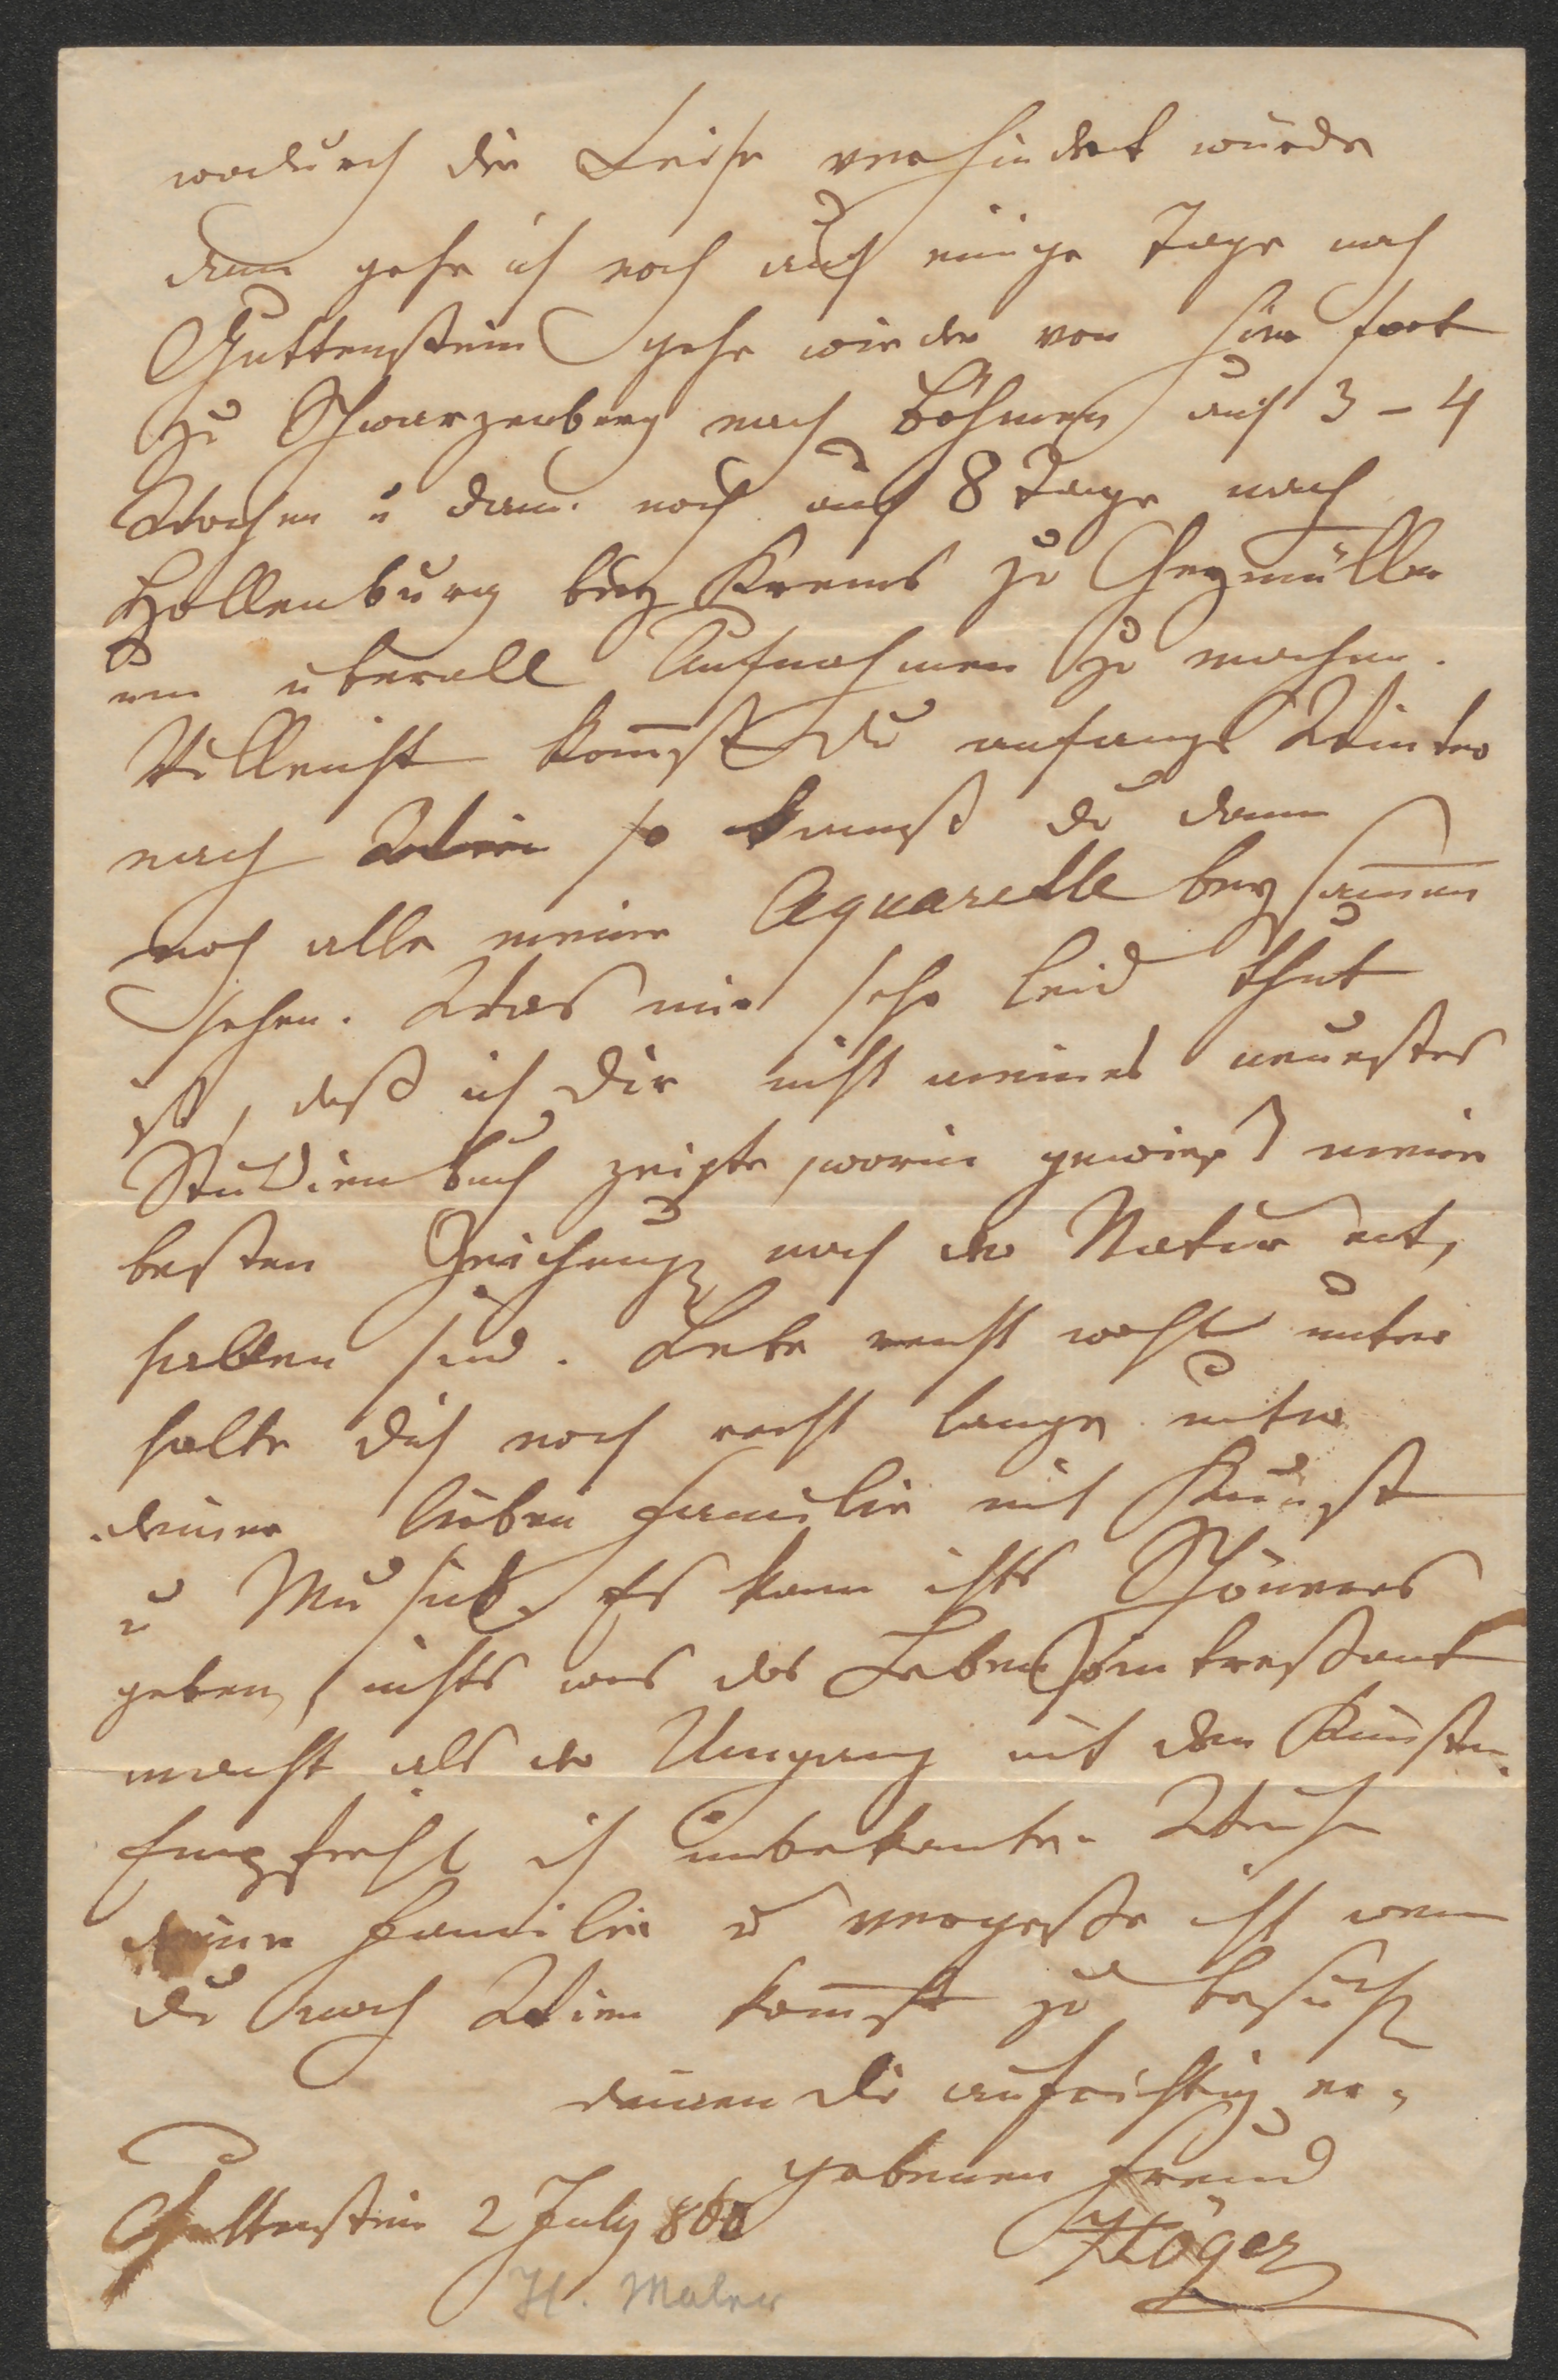 wodurch die Reise verhindert wurde
dann gehe ich noch auf einige Tage nach
Guttenstein gehe wieder von hier fort
zu Schwarzenberg nach Böhmen auf 3 – 4
Wochen u dann noch auf 8 Tage nach
Hollenburg bey Krems zu Geymüller
um überall Aufnahmen zu machen.
Villeicht kom̅st Du anfangs Winter
nach Wien so kannst du dann
noch alle meine Aquarelle beysam̅en
sehen. Was mir sehr leid thut
ist, daß ich Dir nicht meines neuestes
Studienbuch zeigte, worin gewieß meine
besten Zeichnung nach der Natur ent,
halten sind. Lebe recht wohl unter
halte dich noch recht lange unter
deiner lieben Familie mit Kunst
u Musick. Es kann nichts Schöneres
geben, nichts was das Leben so interessant
macht als der Umgang mit den Künsten.
Empfiehl ich unbekanter Weise
deine Familie u vergesse nicht wenn
du nach Wien kom̅st zu besuchen
deinen dir aufrichtig er,
gebenen Freund
Guttenstein 2 July 860
Höger
H. Maler